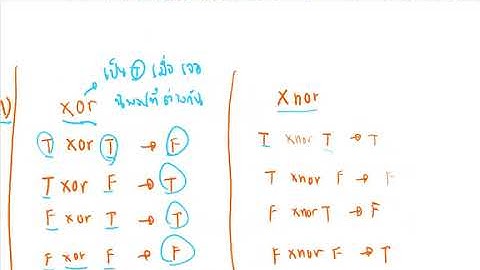 เป็น T เมื่อ เจอ
นิพจน์ที่ต่างกัน
1)
xor
T xor T → F
T xor F → T
F xor T → T
F xor F → F
Xnor
T xnor T → T
T xnor F → F
F xnor T → F
F xnor F → T